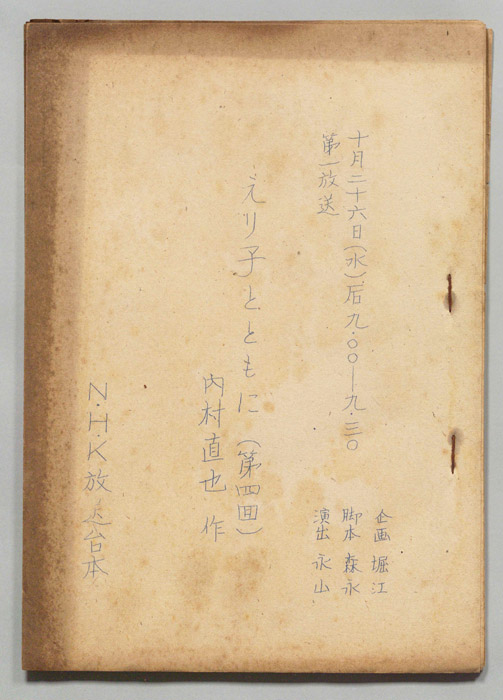 十月二十六日(水)后九・〇〇―九・三〇
第一放送
企画 堀江
脚本 森永
演出 永山
えり子とともに(第四回)
内村直也 作
N・H・K放送台本